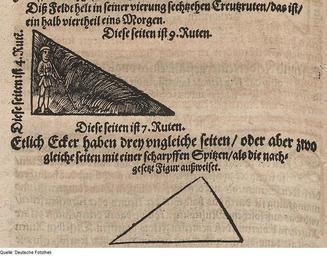 Diß Feldt helt in seiner vierung sechtzehen Creutzruten/das ist/
ein halb viertheil eins Morgen.
Diese seiten ist 9. Ruten.
Diese seiten ist 4. Rut.
Diese seiten ist 7. Ruten.
Etlich Ecker haben drey vngleiche seiten/ oder aber zwo
gleiche seiten mit einer scharpffen Spitzen/als die nach-
gesetzt Figur außweiset.
Quelle: Deutsche Fotothek